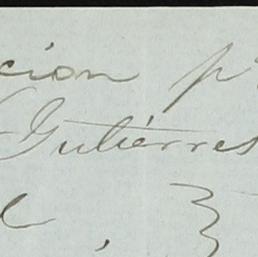 cion p
Gutiérres